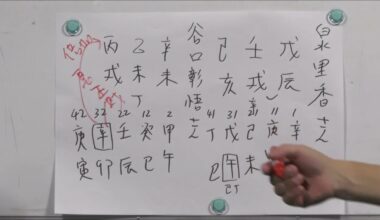 泉里香
戊辰
壬戌辛
己亥
1 辛
11 庚
21 己未
31 戊午己丁
41 丁巳
谷口彰悟
辛未
乙未丁
丙戌
2 甲午
12 癸巳
22 壬辰
32 辛卯
42 庚寅